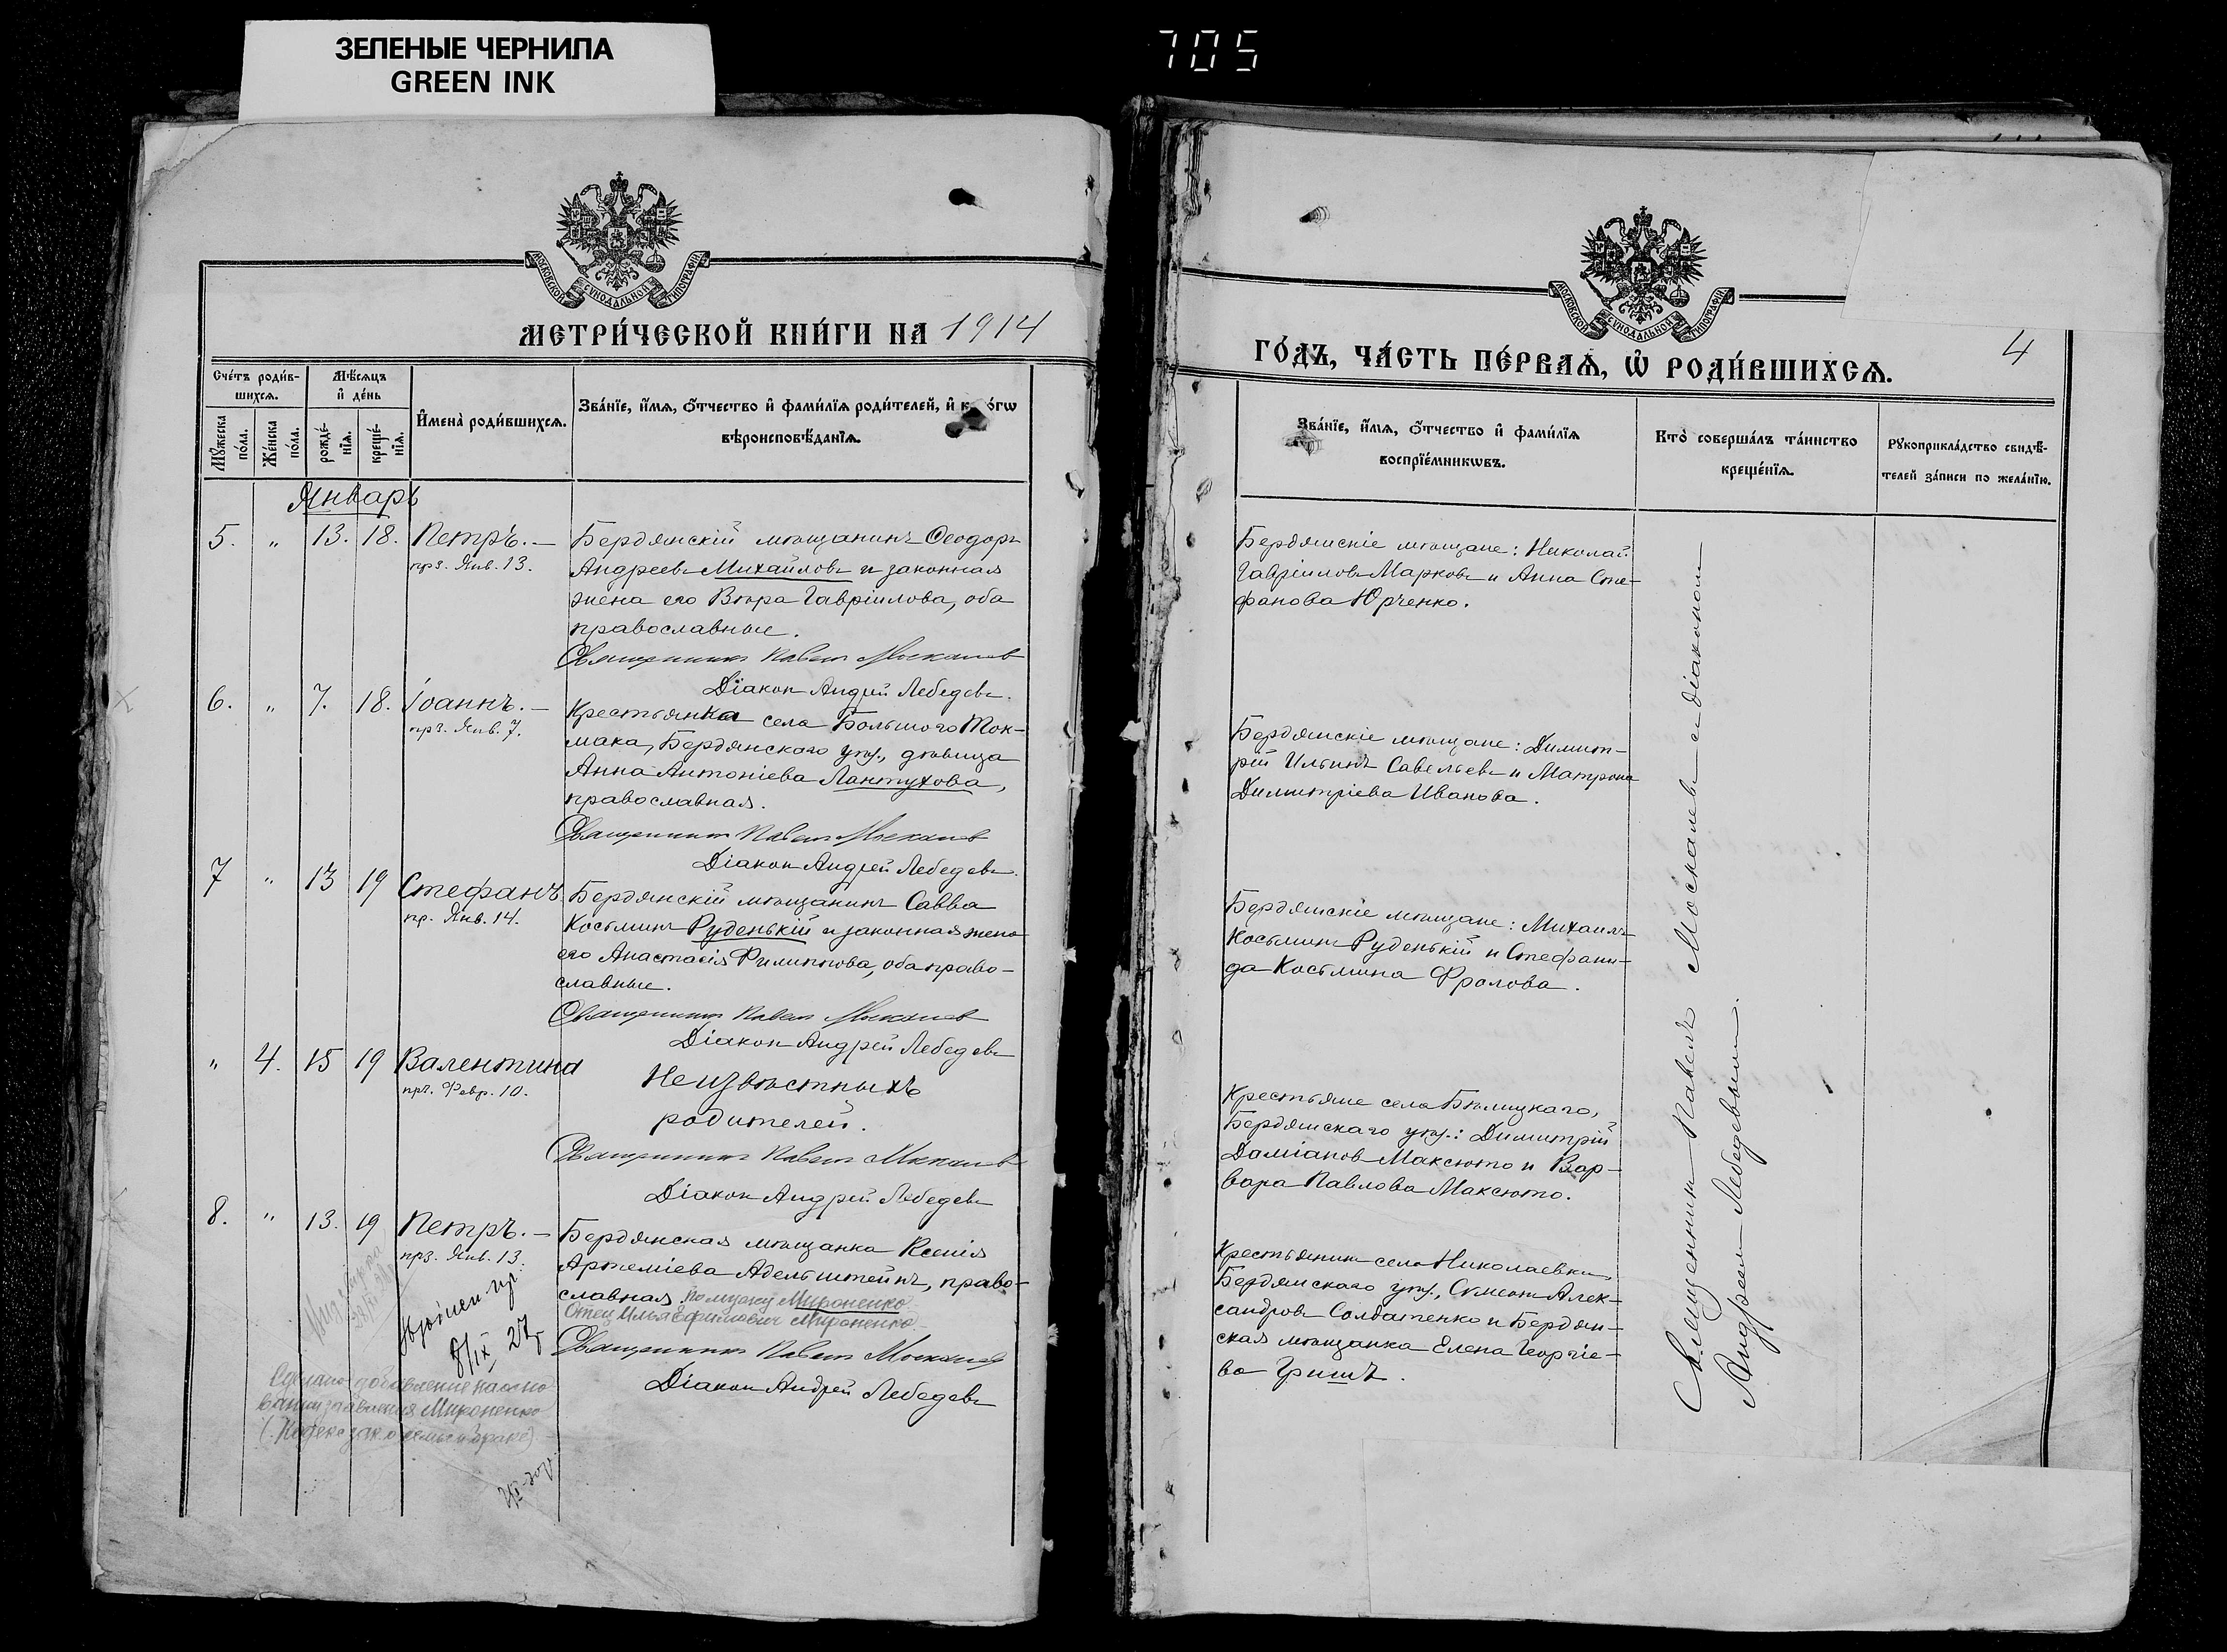 ЗЕЛЕНЫЕ ЧЕРНИЛА
GREEN INK
705
МОСКОВСКОЙ СѴНОДАЛЬНОЙ ТИПОГРАФІИ
МЕТРИ́ЧЕСКОЙ КНИ́ГИ НА 1914
Сче́тъ роди́в-
шихсѧ.
Мѣ́сѧцъ
и҆ де́нь
Мꙋ́жеска
по́ла.
Же́нска
по́ла.
рожде́-
нїѧ.
креще́-
нїѧ.
И҆мена̀ роди́вшихсѧ.
Зва́нїе, и҆́мѧ, ѻ҆́тчество и҆ фами́лїѧ роди́телей, и҆ к о́гѡ
вѣроисповѣ́данїѧ.
Январь
5. " 13. 18. Петръ. —
прз. Янв. 13.
Бердянскій мѣщанинъ Ѳеодоръ
Андреевъ Михайловъ и законная
жена его Вѣра Гавріилова, оба
православные.
Священникъ Павелъ Москалевъ
Діаконъ Андрей Лебедевъ.
6. " 7. 18. Іоаннъ. —
прз. Янв. 7.
Крестьянка села Большого Ток-
мака, Бердянскаго уѣз., дѣвица
Анна Антоніева Лантухова,
православная.
Священникъ Павелъ Москалевъ
Діаконъ Андрей Лебедевъ.
7 " 13 19 Стефанъ.
пр. Янв. 14.
Бердянскій мѣщанинъ Савва
Косьминъ Руденькій и законная жена
его Анастасія Филиппова, оба право-
славные.
Священникъ Павелъ Москалевъ
Діаконъ Андрей Лебедевъ
" 4. 15 19 Валентина
пр. Февр. 10.
Неизвѣстныхъ
родителей.
Священникъ Павелъ Москалевъ
Діаконъ Андрей Лебедевъ
8. " 13. 19 Петръ. —
прз. Янв. 13.
Бердянская мѣщанка Ксенія
Артеміева Адельштейнъ, право-
славная. По мужу Мироненко
Отец Илья Ефимович Мироненко.
Священникъ Павелъ Москалевъ
Діаконъ Андрей Лебедевъ
8/IX 27
Сделано добавление на осно
вании заявления Мироненко
(Кодекс зак. о семье и браке)
МОСКОВСКОЙ СѴНОДАЛЬНОЙ ТИПОГРАФІИ
4
ГО́ДЪ, ЧА́СТЬ ПЕ́РВАѦ, Ѡ҆ РОДИ́ВШИХСѦ.
Зва́нїе, и҆́мѧ, ѻ҆́тчество и҆ фами́лїѧ
воспрїе́мникѡвъ.
Кто̀ соверша́лъ та́инство
креще́нїѧ.
Рꙋкоприкла́дство свидѣ́-
телей за́писи по жела́нїю.
Бердянскіе мѣщане: Николай
Гавріиловъ Марковъ и Анна Сте-
фанова Юрченко.
Бердянскіе мѣщане: Димит-
рій Ильинъ Савельевъ и Матрона
Димитріева Иванова.
Бердянскіе мѣщане: Михаилъ
Косьминъ Руденькій и Стефани-
да Косьмина Фролова.
Крестьяне села Бѣлицкаго,
Бердянскаго уѣз.: Димитрій
Даміановъ Максюто и Вар-
вара Павлова Максюто.
Крестьянинъ села Николаевки,
Бердянскаго уѣз., Симеонъ Алек-
сандровъ Солдатенко и Бердян-
ская мѣщанка Елена Георгіе-
ва Гришъ.
Священникъ Павелъ Москалевъ с діакономъ
Андреемъ Лебедевымъ.